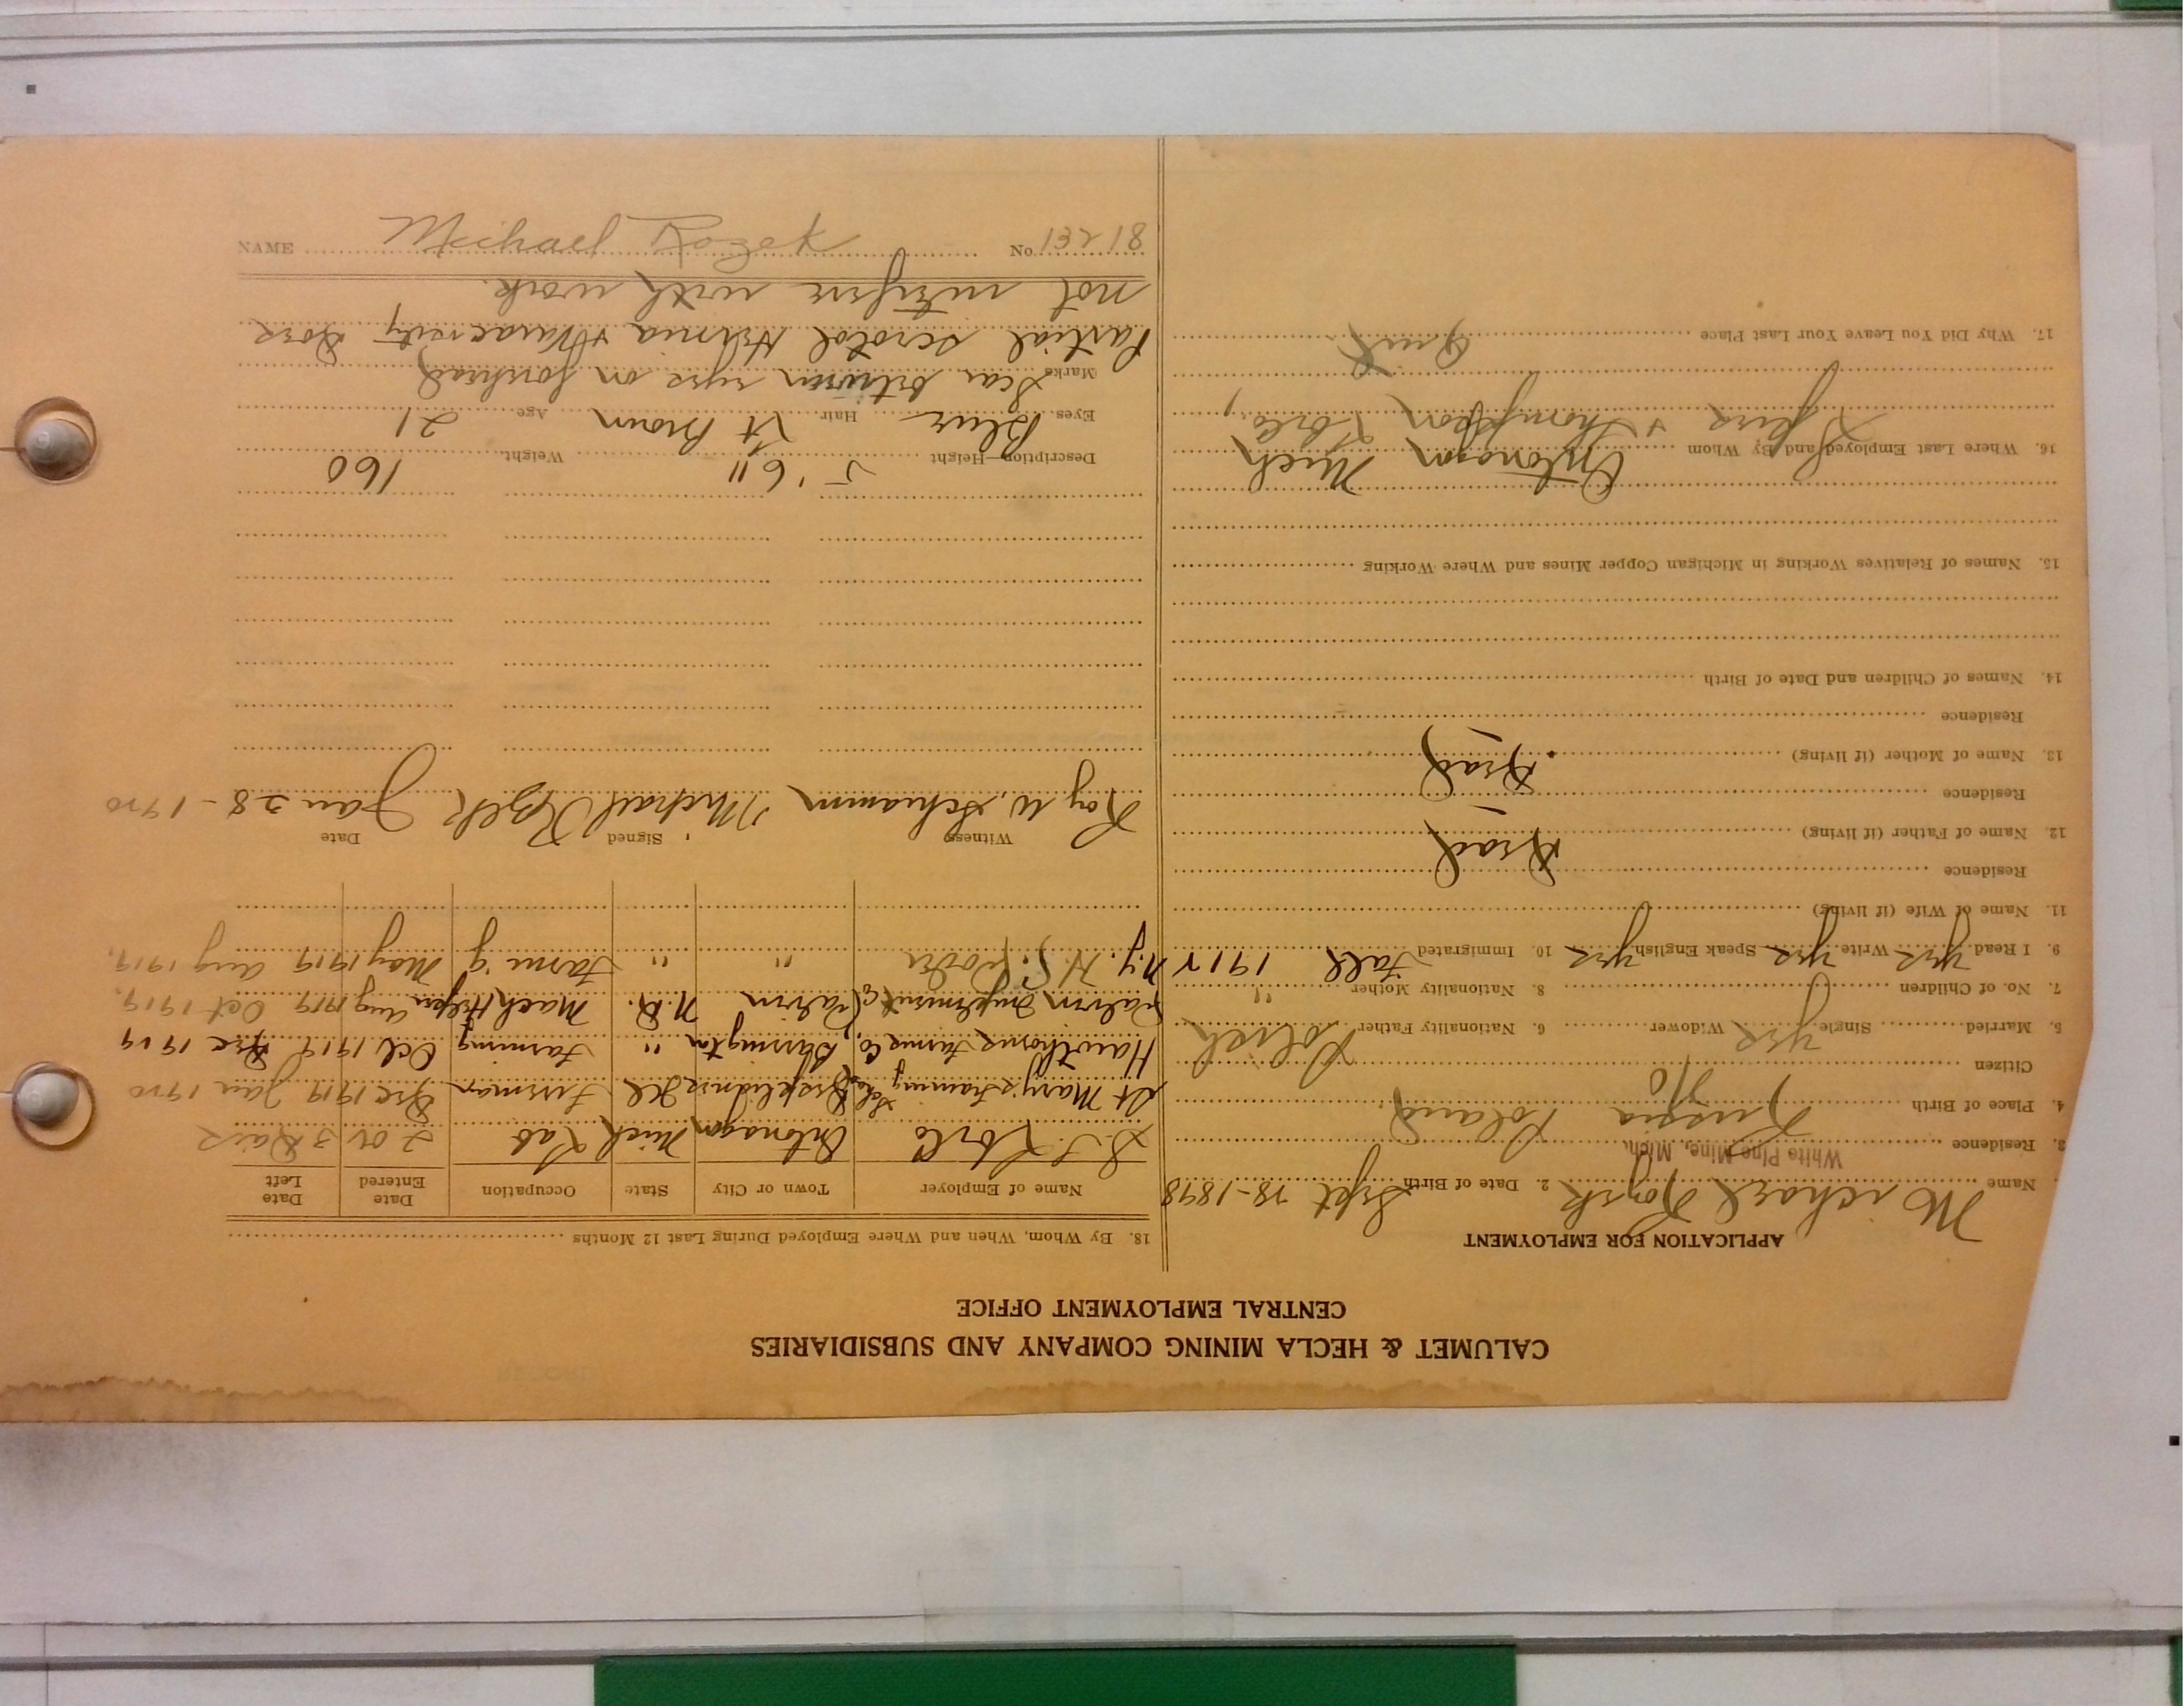 CALUMET & HECLA MINING COMPANY AND SUBSIDIARIES
CENTRAL EMPLOYMENT OFFICE
APPLICATION FOR EMPLOYMENT
Name Michael Rozek 2. Date of Birth Sept 28-1898
3. Residence White Pine Mine, Mich.
4. Place of Birth Russia Poland.
Citizen No
5. Married Single yes Widower 6. Nationality Father Polish
7. No. of Children 8. Nationality Mother "
9. I Read yes Write yes Speak English yes 10. Immigrated Fall 1912
11. Name of Wife (if living)
Residence
12. Name of Father (if living) Dead
Residence
13. Name of Mother (if living) Dead
Residence
14. Names of Children and Date of Birth
15. Names of Relatives Working in Michigan Copper Mines and Where Working
16. Where Last Employed and By Whom Ontonagon Mich
& Thompson
17. Why Did You Leave Your Last Place Quit
18. By Whom, When and Where Employed During Last 12 Months
Name of Employer Town or City State Occupation Date Entered Date Left
Ontonagon Mich Lab 2 or 3 Days
St Mary's Training School Desplaines Ill Fireman Dec 1919 Jan 1920
Hawthorne Farms Co, Barrington " Farming Oct 1919 Dec 1919
Implement Co N.D. Mach Helper Aug 1919 Oct 1919.
" " Farmi'g May 1919 Aug 1919.
Witness Signed Date
Roy W. Schramm Michael Rozek Jan 28-1920
Description—Height 5'6" Weight 160
Eyes Blue Hair Lt Brown Age 21
Marks Scar between eyes on forehead
Partial scrotal Hernia & Varacosity Does
not interfere with work.
NAME Michael Rozek No. 13218